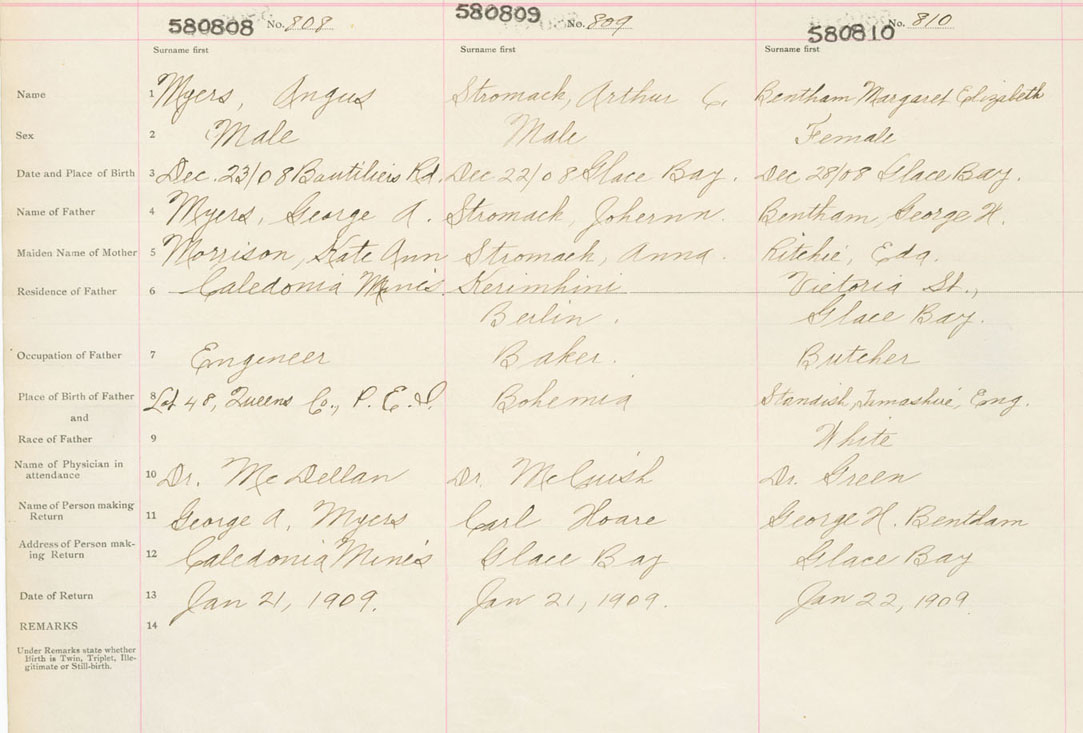 580808 No. 808 580809 No. 809 580810 No. 810
Surname first Surname first Surname first
Name 1 Myers, Angus Stromack, Arthur C. Bentham Margaret Elizabeth
Sex 2 Male Male Female
Date and Place of Birth 3 Dec. 23/08 Boutiliers Rd. Dec 22/08 Glace Bay. Dec 28/08 Glace Bay.
Name of Father 4 Myers, George A. Stromack, Johernn. Bentham, George H.
Maiden Name of Mother 5 Morrison, Kate Ann Stromack, Anna. Ritchie, Eda.
Residence of Father 6 Caledonia Mines Victoria St.,
Berlin. Glace Bay.
Occupation of Father 7 Engineer Baker. Butcher
Place of Birth of Father 8 Lot 48, Queens Co., P.E.I. Bohemia Standish, Eng.
and
Race of Father 9 White
Name of Physician in
attendance 10 Dr. McDellan Dr. McCuish Dr. Green
Name of Person making
Return 11 George A. Myers Carl Hoare George H. Bentham
Address of Person mak-
ing Return 12 Caledonia Mines Glace Bay Glace Bay
Date of Return 13 Jan 21, 1909. Jan 21, 1909. Jan 22, 1909.
REMARKS 14
Under Remarks state whether
Birth is Twin, Triplet, Ille-
gitimate or Still-birth.